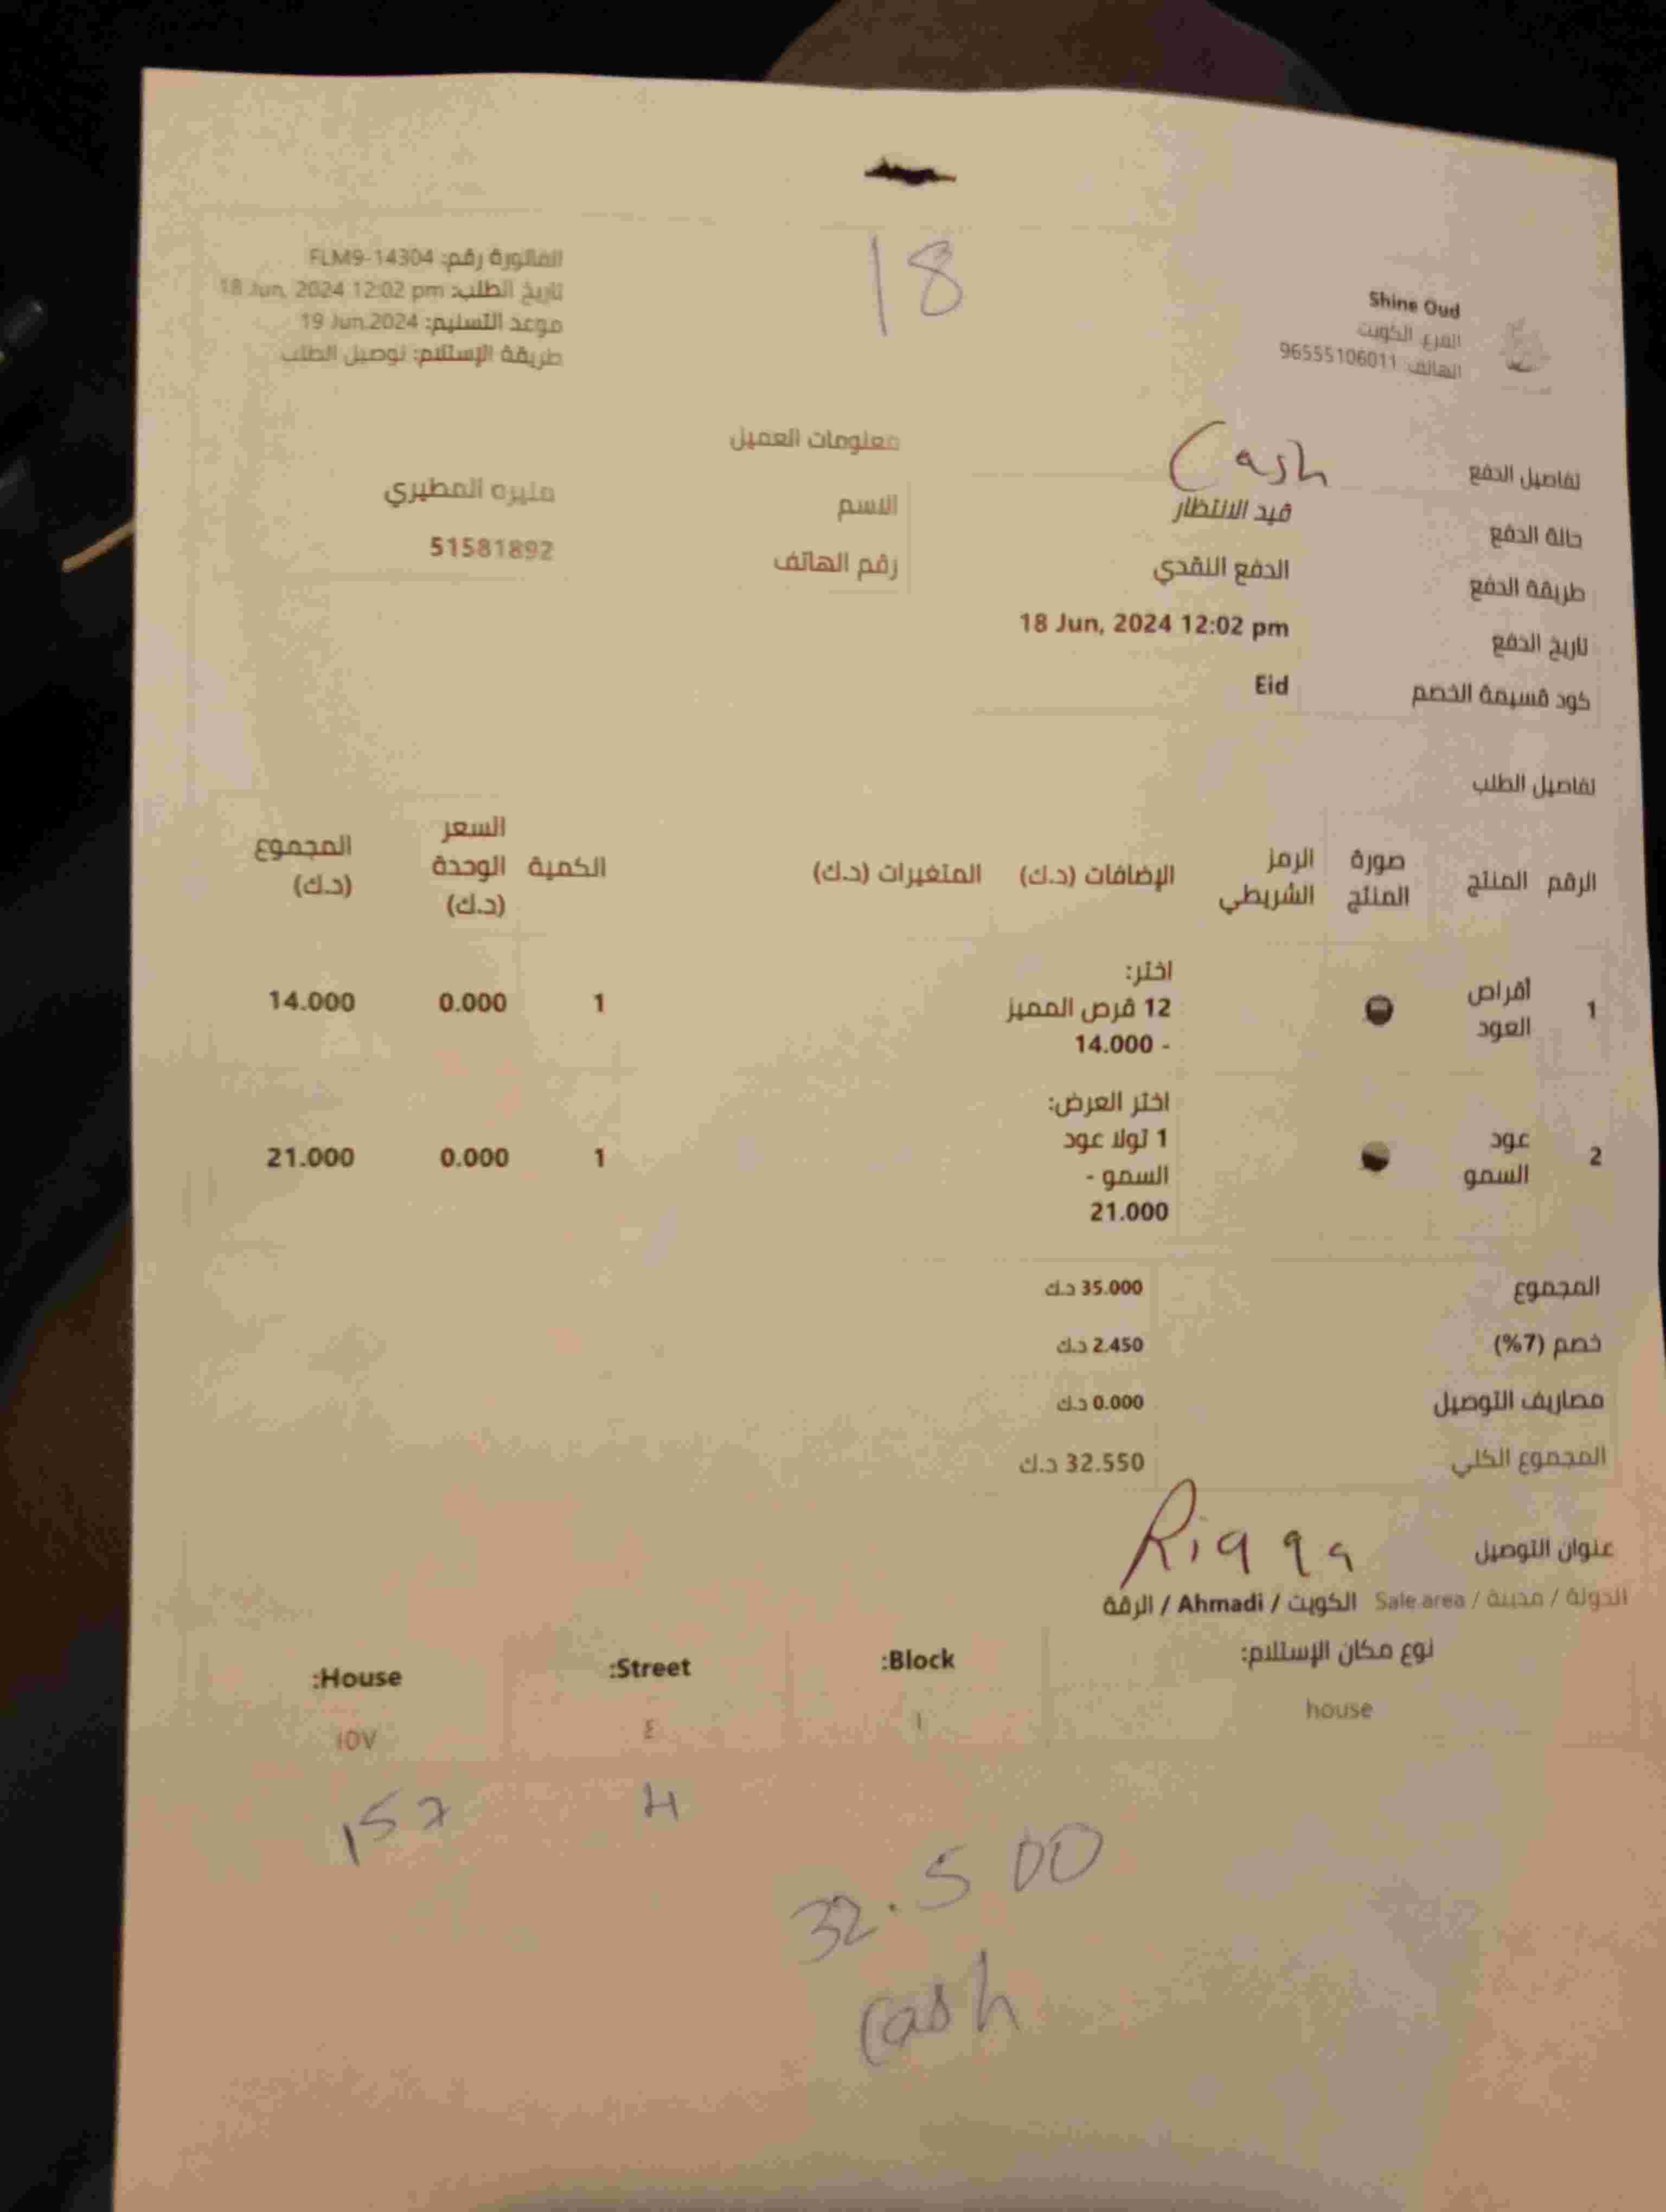 18
Shine Oud
الفرع الكويت
الهاتف 96555106011
الفاتورة رقم: FLM9-14304
تاريخ الطلب: 18 Jun, 2024 12:02 pm
موعد التسليم: 19 Jun 2024
طريقة الإستلام: توصيل الطلب
تفاصيل الدفع Cash
حالة الدفع قيد الانتظار
طريقة الدفع الدفع النقدي
تاريخ الدفع 18 Jun, 2024 12:02 pm
كود قسيمة الخصم Eid
معلومات العميل
الاسم منيره المطيري
رقم الهاتف 51581892
تفاصيل الطلب
الرقم المنتج صورة المنتج الرمز الشريطي الإضافات (د.ك) المتغيرات (د.ك) الكمية السعر الوحدة (د.ك) المجموع (د.ك)
1 أقراص العود اختر: 12 قرص المميز - 14.000 1 0.000 14.000
2 عود السمو اختر العرض: 1 تولا عود السمو - 21.000 1 0.000 21.000
المجموع 35.000 د.ك
خصم (7%) 2.450 د.ك
مصاريف التوصيل 0.000 د.ك
المجموع الكلي 32.550 د.ك
عنوان التوصيل Riqqa
الدولة / مدينة / Sale area الكويت / Ahmadi / الرقة
نوع مكان الإستلام: Block: Street: House:
house ١ ٤ ١٥٧
4 157
32.500
Cash